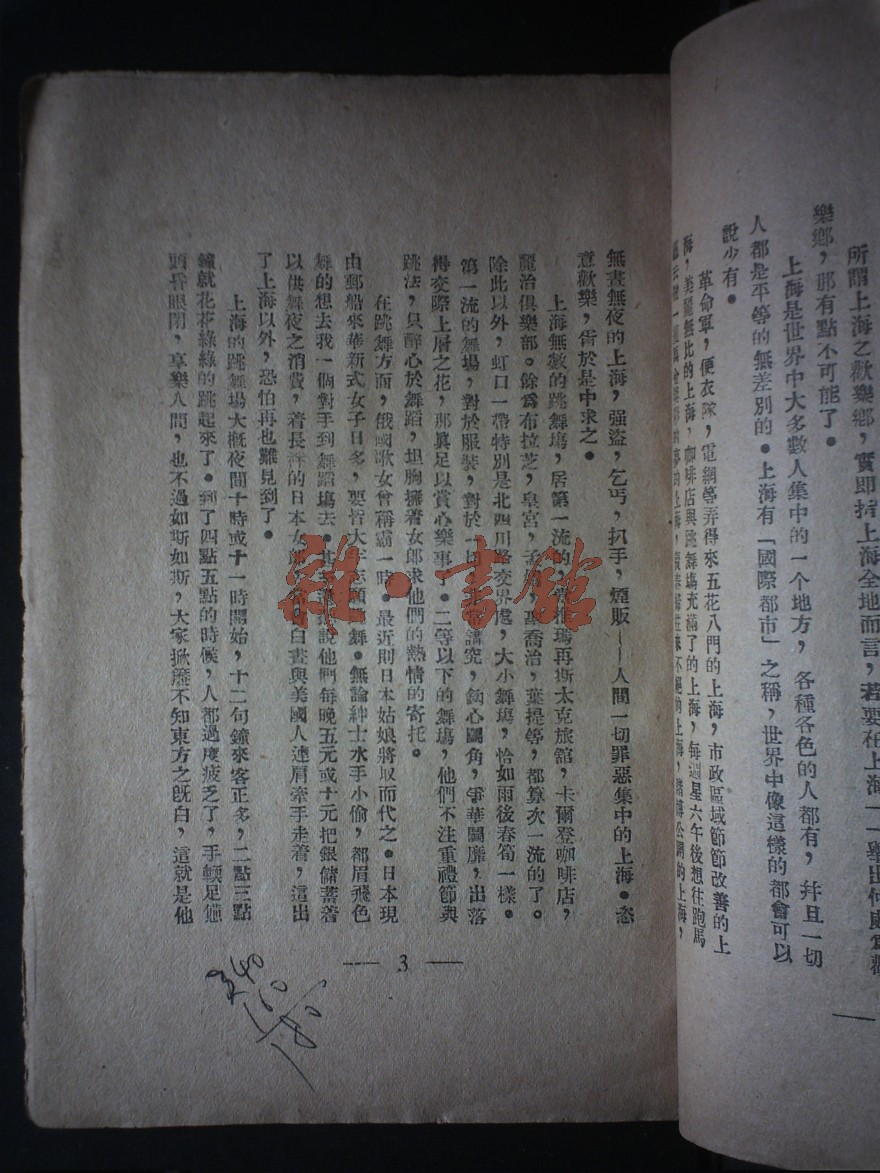 所謂上海之歡樂鄉，實即指上海全地而言，若要在上海一一舉出何處爲歡
樂鄉，那有點不可能了。
上海是世界中大多數人集中的一个地方，各種各色的人都有，幷且一切
人都是平等的無差別的。上海有「國際都市」之稱，世界中像這樣的都會可以
說少有。
革命軍，便衣隊，電網等弄得來五花八門的上海，市政區域節節改善的上
海，美麗無比的上海，咖啡店與跳舞塲充滿了的上海，每週星六午後想往跑馬
的上海，賭博公開的上海，
無晝無夜的上海，强盜，乞丐，扒手，煙販——人間一切罪惡集中的上海。恣
意歡樂，皆於是中求之。
上海無數的跳舞塲，居第一流的，當推瑪再斯太克旅舘，卡爾登咖啡店，
麗治俱樂部。餘爲布拉芝，皇宮，喬治，葉提等，都算次一流的了。
除此以外，虹口一帶特別是北四川路交界處，大小舞塲，恰如雨後春筍一樣。
第一流的舞塲，對於服裝，對於一切，講究，鈎心鬭角，爭華鬭靡，出落
得交際上層之花，那眞足以賞心樂事。二等以下的舞塲，他們不注重禮節與
跳法，只醉心於舞蹈，坦胸擁着女郎求他們的熱情的寄托。
在跳舞方面，俄國歌女曾稱霸一時。最近則日本姑娘將取而代之。日本現
由郵船來華新式女子日多，要皆大志願舞。無論紳士水手小偷，都眉飛色
舞的想去找一個對手到舞蹈塲去。甚說他們每晚五元或十元把銀儲蓄着
以供舞夜之消費，着長袖的日本女郎白晝與美國人連肩牽手走着，這出
了上海以外，恐怕再也難見到了。
上海的跳舞塲大概夜間十時或十一時開始，十二句鐘來客正多，二點三點
鐘就花花綠綠的跳起來了。到了四點五點的時候，人都過度疲乏了，手頓足僵
頭昏眼閉，享樂人間，也不過如斯如斯，大家掀簾不知東方之旣白，這就是他
— 3 —
雜·書館